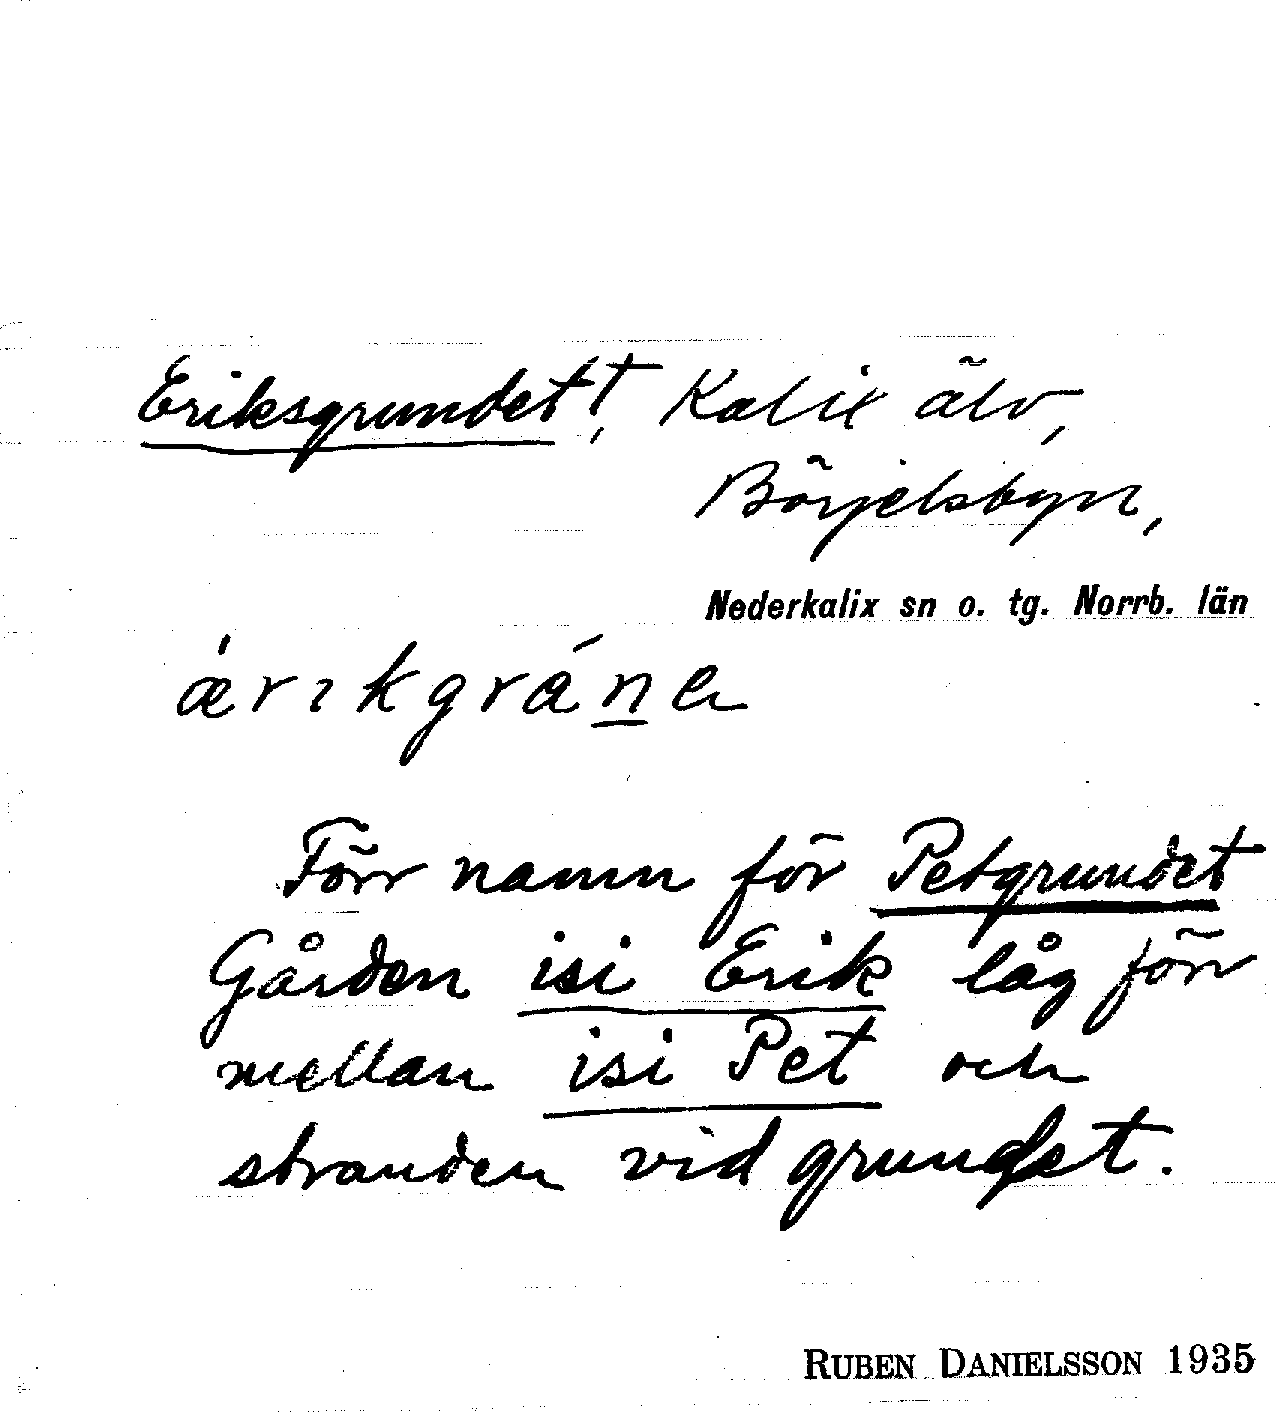 Eriksgrundet †, Kalix älv,
Börjelsbyn,
Nederkalix sn o. tg. Norrb. län
ǽrıkgráṉe
Förr namn för Petgrundet
Gården isi Erik låg förr
mellan isi Pet och
stranden vid grundet.
RUBEN DANIELSSON 1935